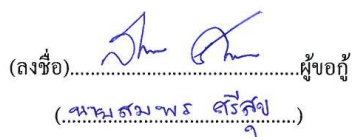 (ลงชื่อ)....................ผู้ขอกู้
(นายสมพร ศรีสุข)